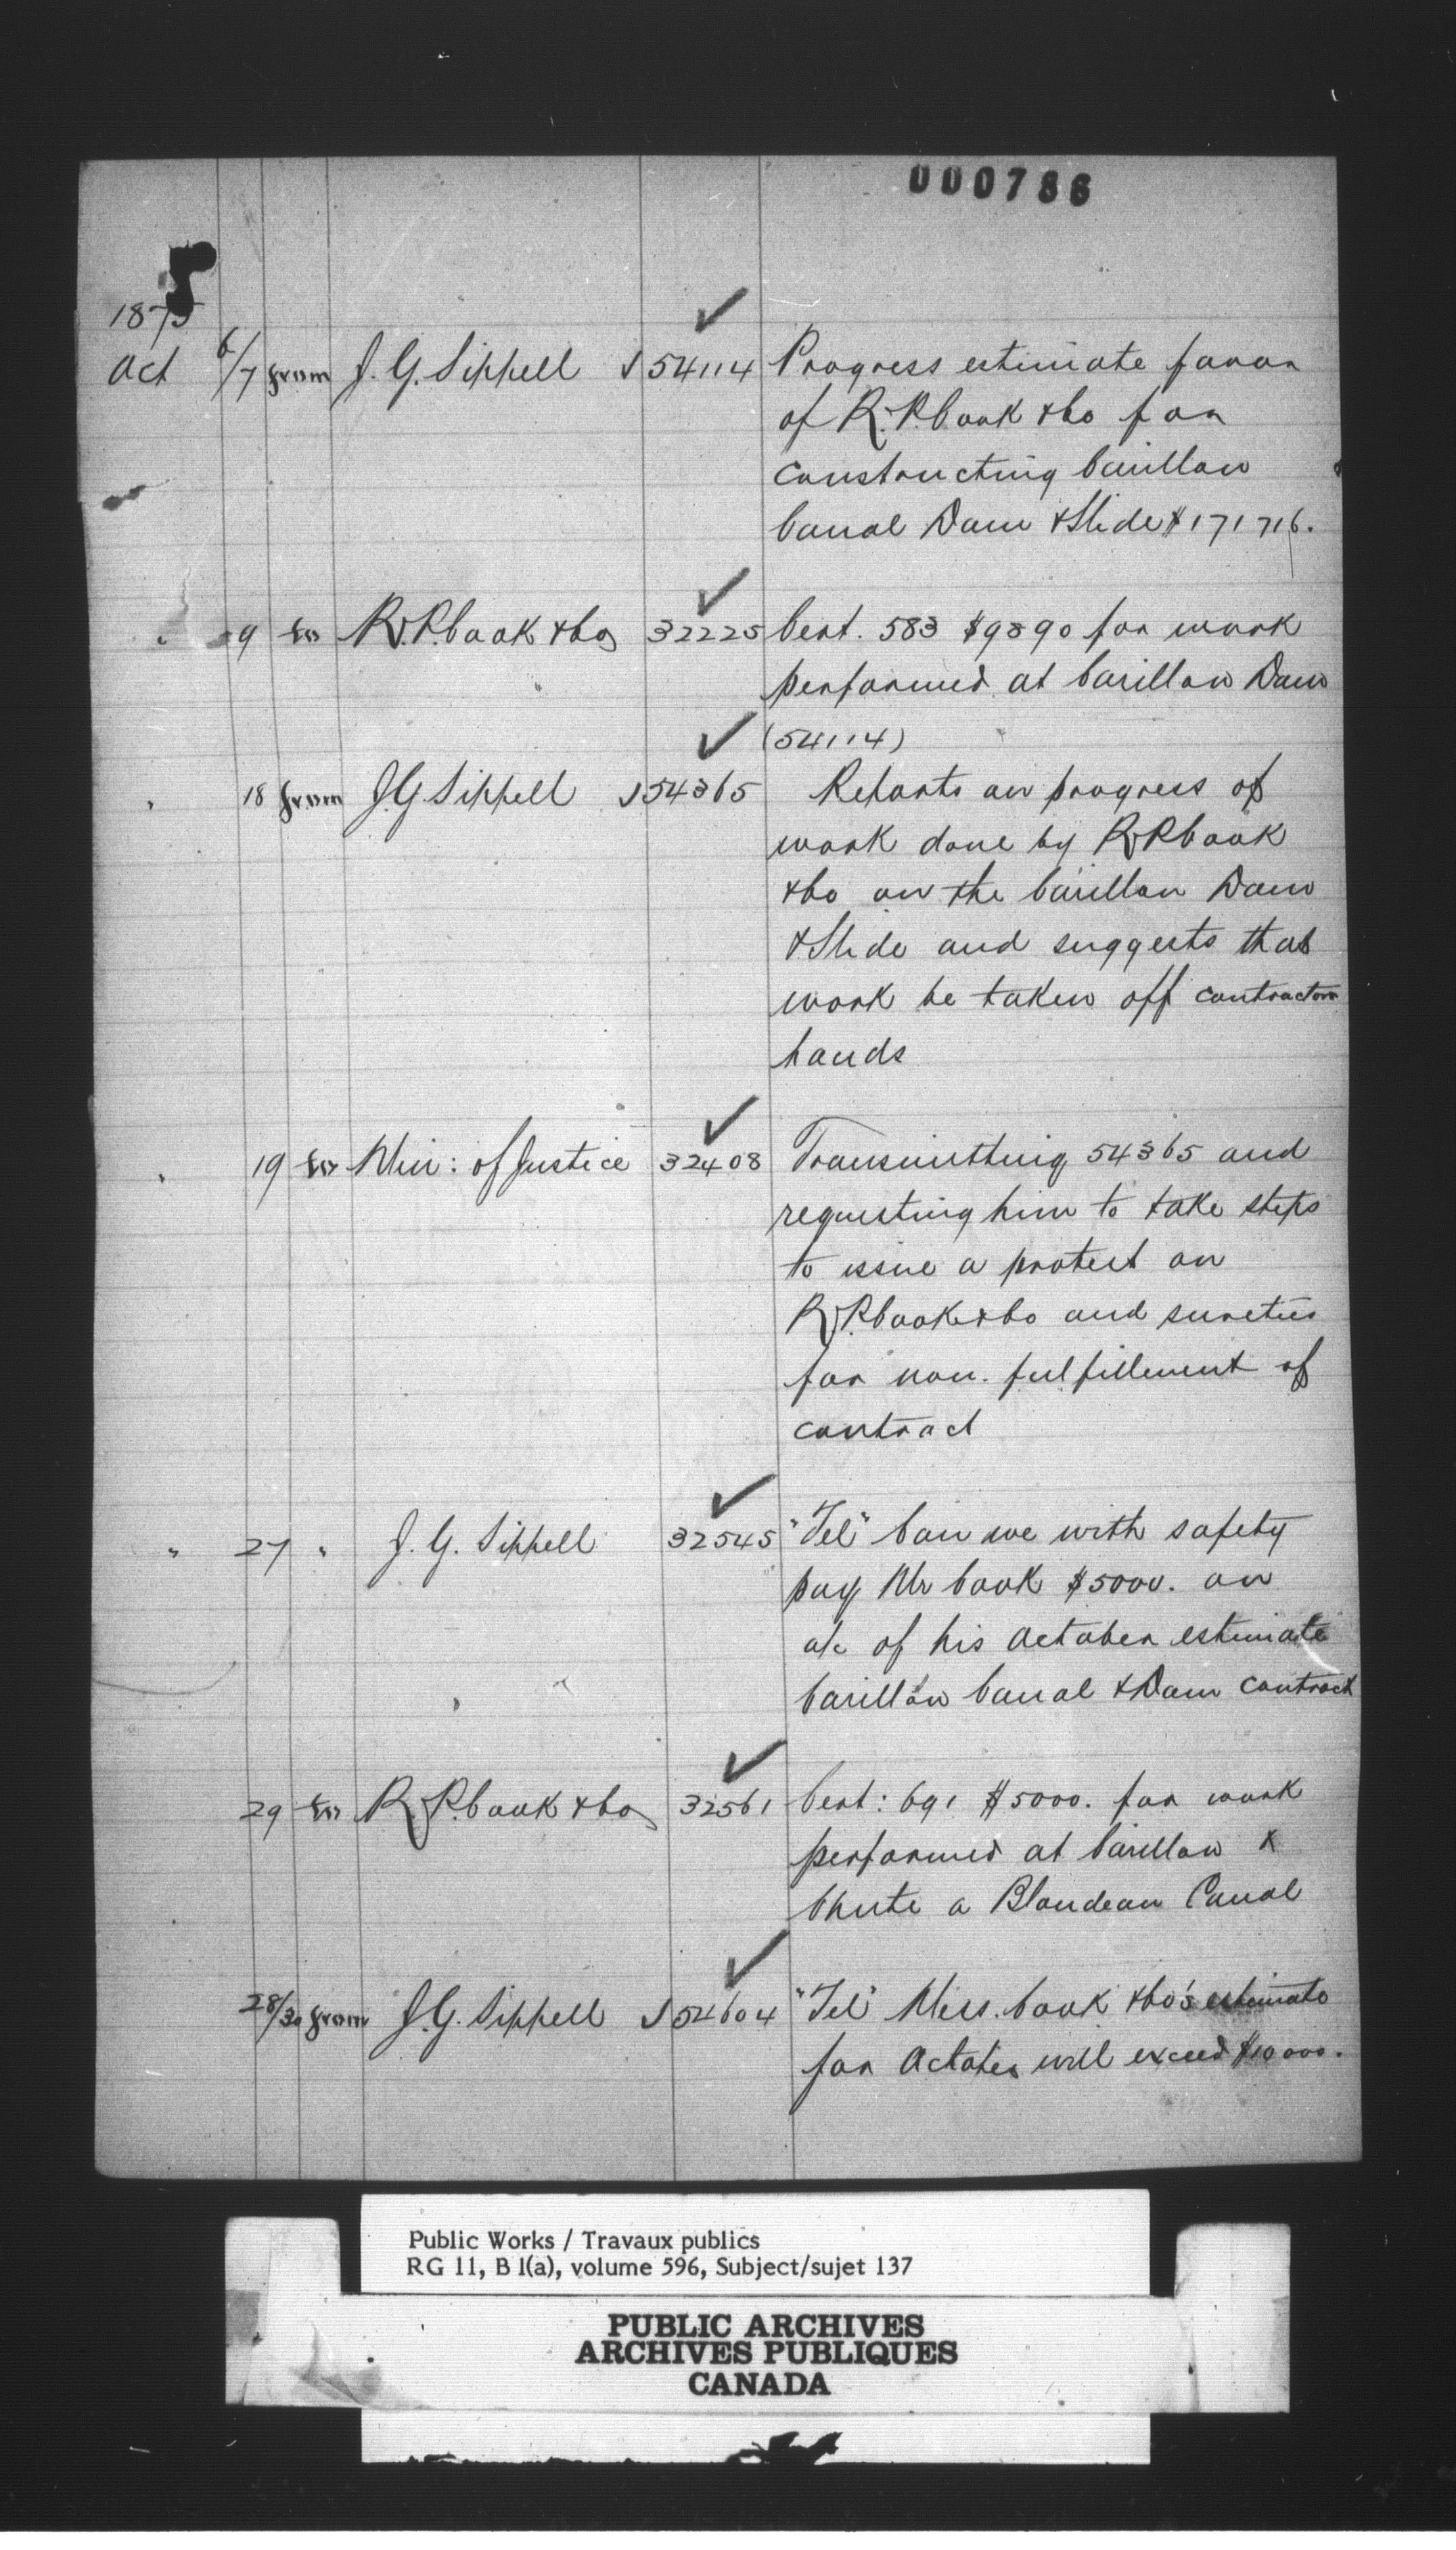 000786
1875
Oct 6/7 from J. G. Sippell J 54114 Progress estimate favor
of R. P. Cook & Co for
constructing Carillon
Canal Dam & Slide $171716.
" 9 to R. P. Cook & Co 32225 Cert. 583 $9890 for work
performed at Carillon Dam
(54114)
" 18 from J G Sippell J 54365 Reports on progress of
work done by R P Cook
& Co on the Carillon Dam
& Slide and suggests that
work be taken off contractors
hands
" 19 to Min: of Justice 32408 Transmitting 54365 and
requesting him to take steps
to issue a protest on
R. P. Cook & Co and sureties
for non. fulfillement of
contract
" 27 " J. G. Sippell 32545 "Tel" Can we with safety
pay Mr Cook $5000. on
a/c of his October estimate
Carillon Canal & Dam contract
29 to R. P. Cook & Co 32561 Cert: 691 $5000. for work
performed at Carillon &
Chute a Blondeau Canal
28/30 from J. G. Sippell J 54604 "Tel" Mess. Cook & Co's estimate
for October will exceed $10000.
Public Works / Travaux publics
RG 11, B 1(a), volume 596, Subject/sujet 137
PUBLIC ARCHIVES
ARCHIVES PUBLIQUES
CANADA